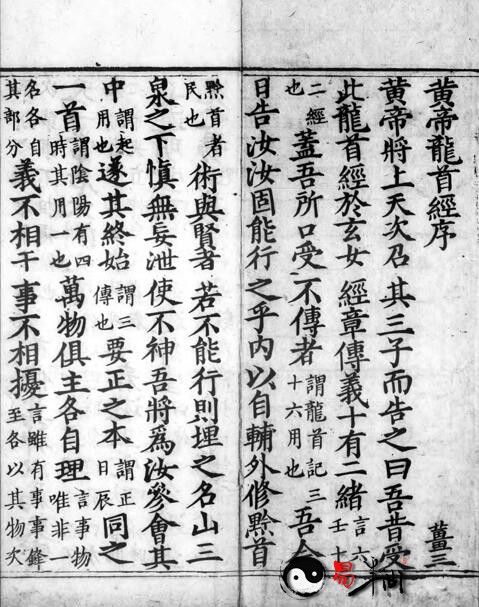 黃帝龍首經序 薑三
黃帝將上天次召其三子而告之曰吾昔受
此龍首經於玄女經章傳義十有二緒言六壬十
二經也蓋吾所口受不傳者謂龍首記三十六用也吾今
日告汝汝固能行之乎內以自輔外修黔首
黔首者民也術與賢者若不能行則埋之名山三
泉之下慎無妄泄使不神吾將爲汝參會其
中謂起用也遂其終始謂三傳也要正之本謂正日辰同之
一首謂陰陽有四時其用一也萬物俱主各自理言事物唯非一
名各自其部分義不相干事不相擾言雖有事事鋒至各以其物次
易